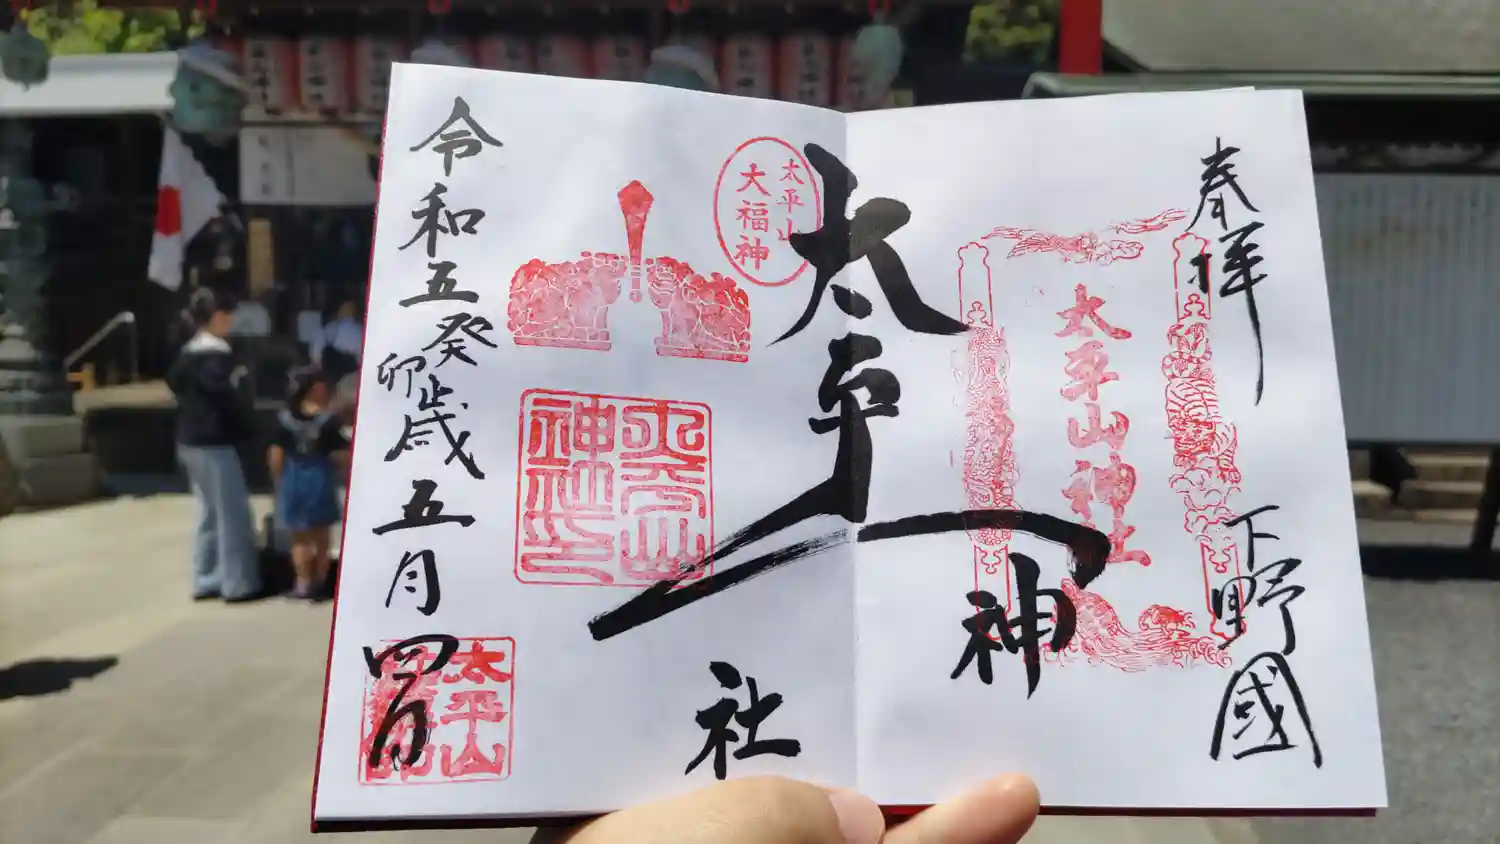 奉拝
下野國
太平山神社
太平山神社
太平山
大福神
太平山
神社印
令和五癸卯歳五月四日
太平山